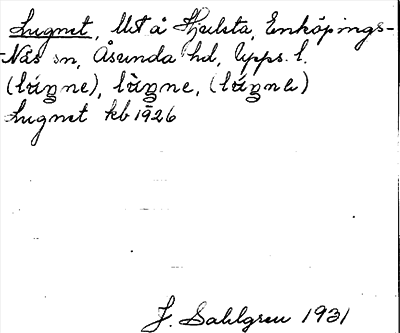 Lugnet, Ust å Hjulsta, Enköpings-
-Näs sn, Åsunda hd, Upps. l.
(lúŋne), lùŋne, (lúŋnе)
Lugnet kb 1926
J. Sahlgren 1931